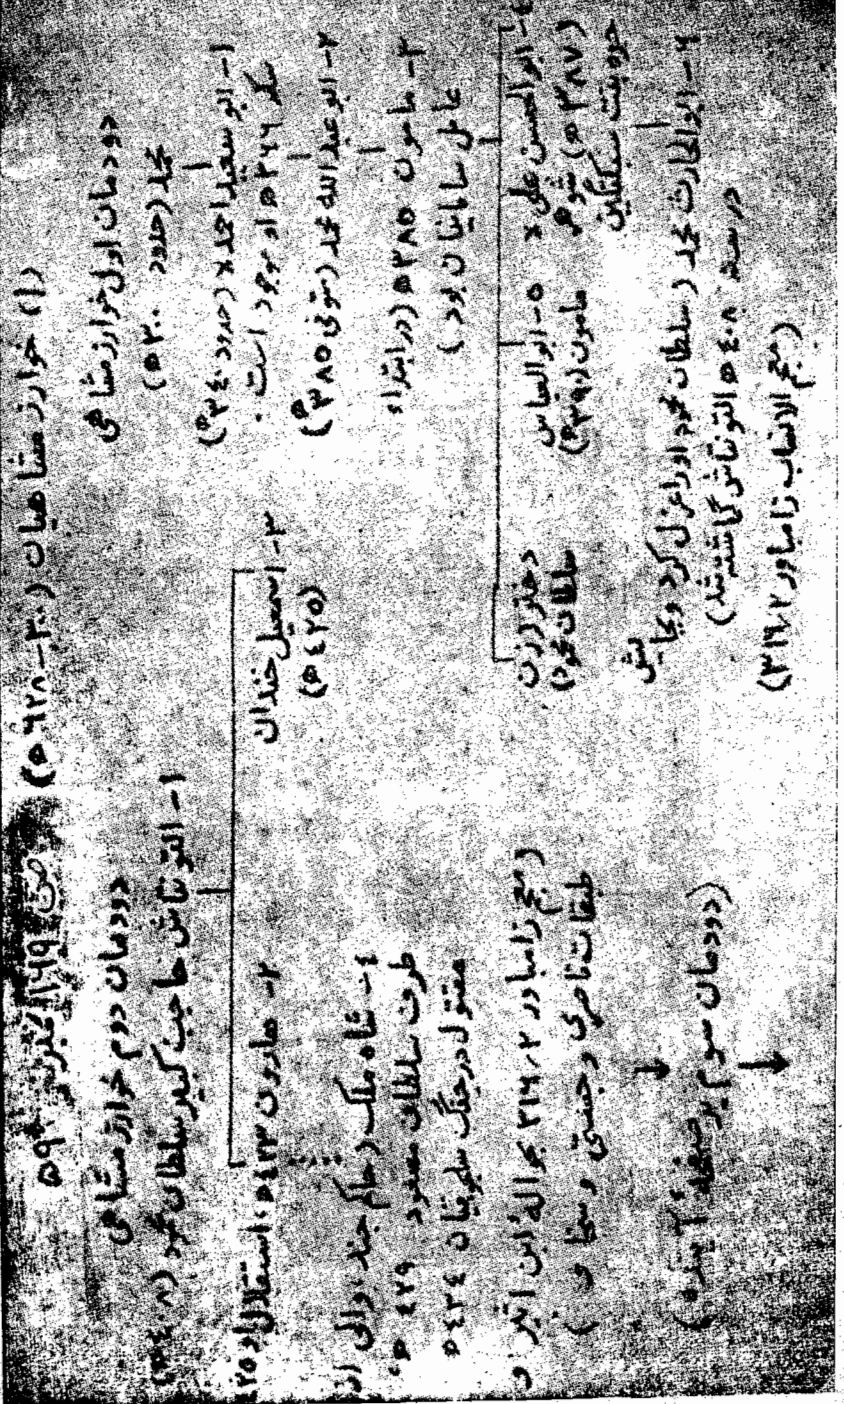 (۱) خوارزمشاهیان (۳۰۰-۶۲۸ ه)
ص ۱۶۹ نمبر ۵۹
دودمان اول خوارزمشاهی
محمد (حدود ۳۰۰ ه)
۱- ابو سعید احمد × (حدود ۳۴۰ ه)
سکه ۳۶۶ ه او موجود است.
۲- ابو عبدالله محمد (متوفی ۳۸۵ ه)
۳- مامون ۳۸۵ ه (در ابتداء
عامل سامانیان بود)
۴- ابوالحسن علی ×
(۳۸۷ ه) شوهر
حره بنت سبکتگین
۵- ابوالعباس
مامون (۳۹۰ ه)
دختر (زن
سلطان محمود)
۶- ابوالحارث محمد (سلطان محمود او را عزل کرد و بجایش
در سنه ۴۰۸ ه التونتاش گماشته شد)
(معجم الانساب زامباور ۲/۳۱۶)
دودمان دوم خوارزمشاهی
۱- التونتاش حاجب کبیر سلطان محمود (۴۰۸ ه)
۲- هارون ۴۲۳ ه، استقلال او ۴۲۵
۳- اسمعیل خندان
(۴۲۵ ه)
۴- شاه ملک (حاکم جند، والی از
طرف سلطان مسعود ۴۲۹ ه،
مقتول در جنگ سلجوقیان ۴۳۴ ه
(معجم زامباور ۲/۳۱۶ بحوالهٔ ابن اثیر و
طبقات ناصری و جهنتی و سخاو)
(دودمان سوم بر صفحهٔ آینده)